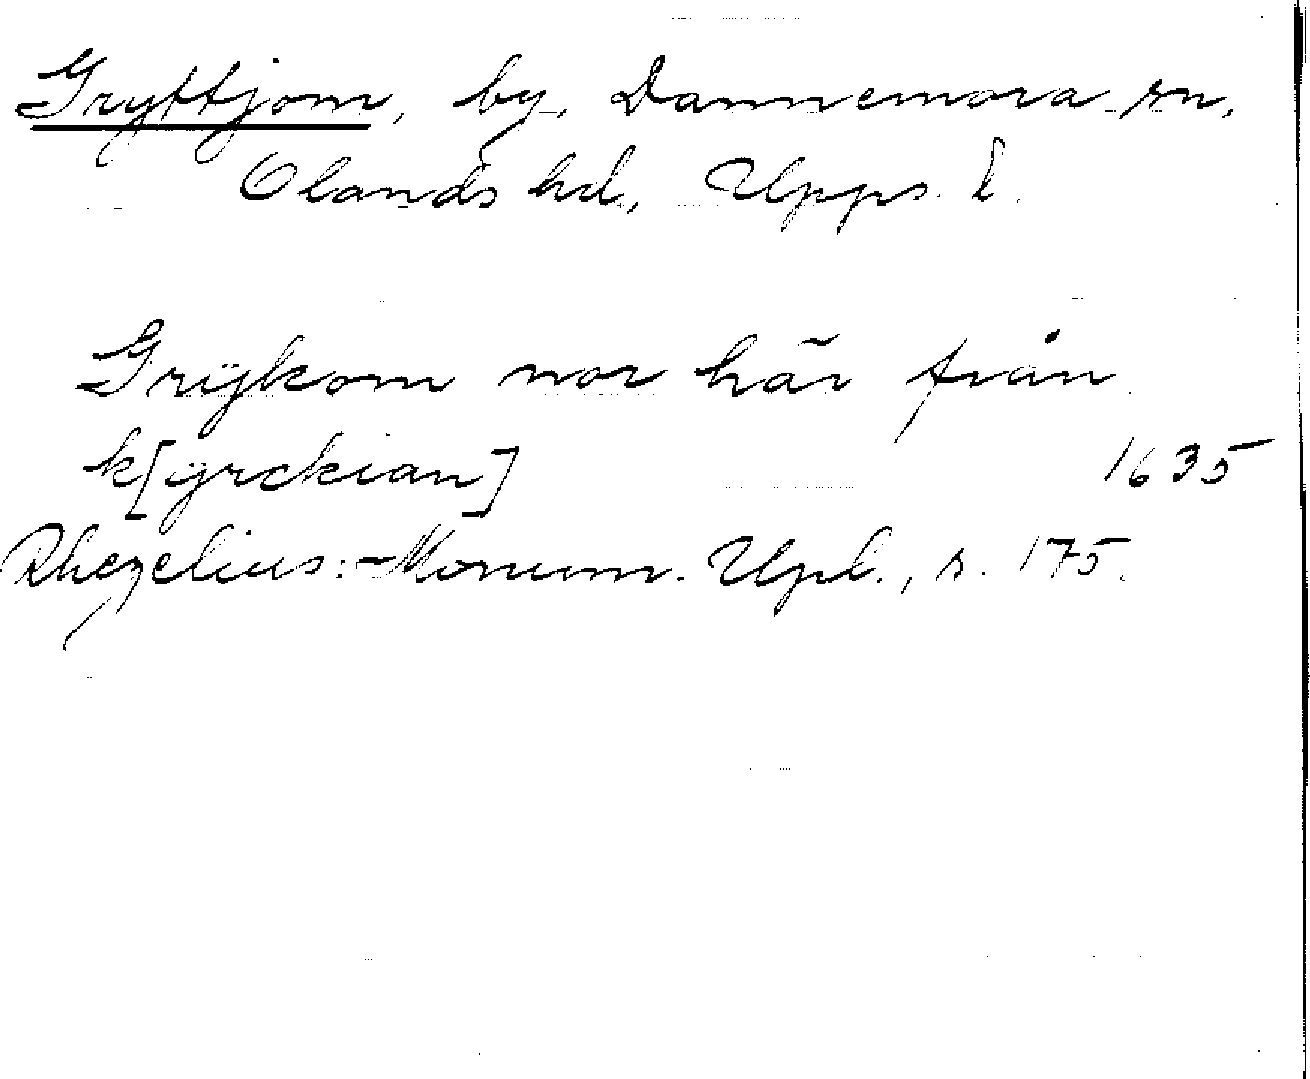 Gryttjom, by, Dannemora sn,
Olands hd, Upps. l.
Grÿkom nor här från
k[yrckian] 1635
Rhezelius: Monum. Upl., s. 175.